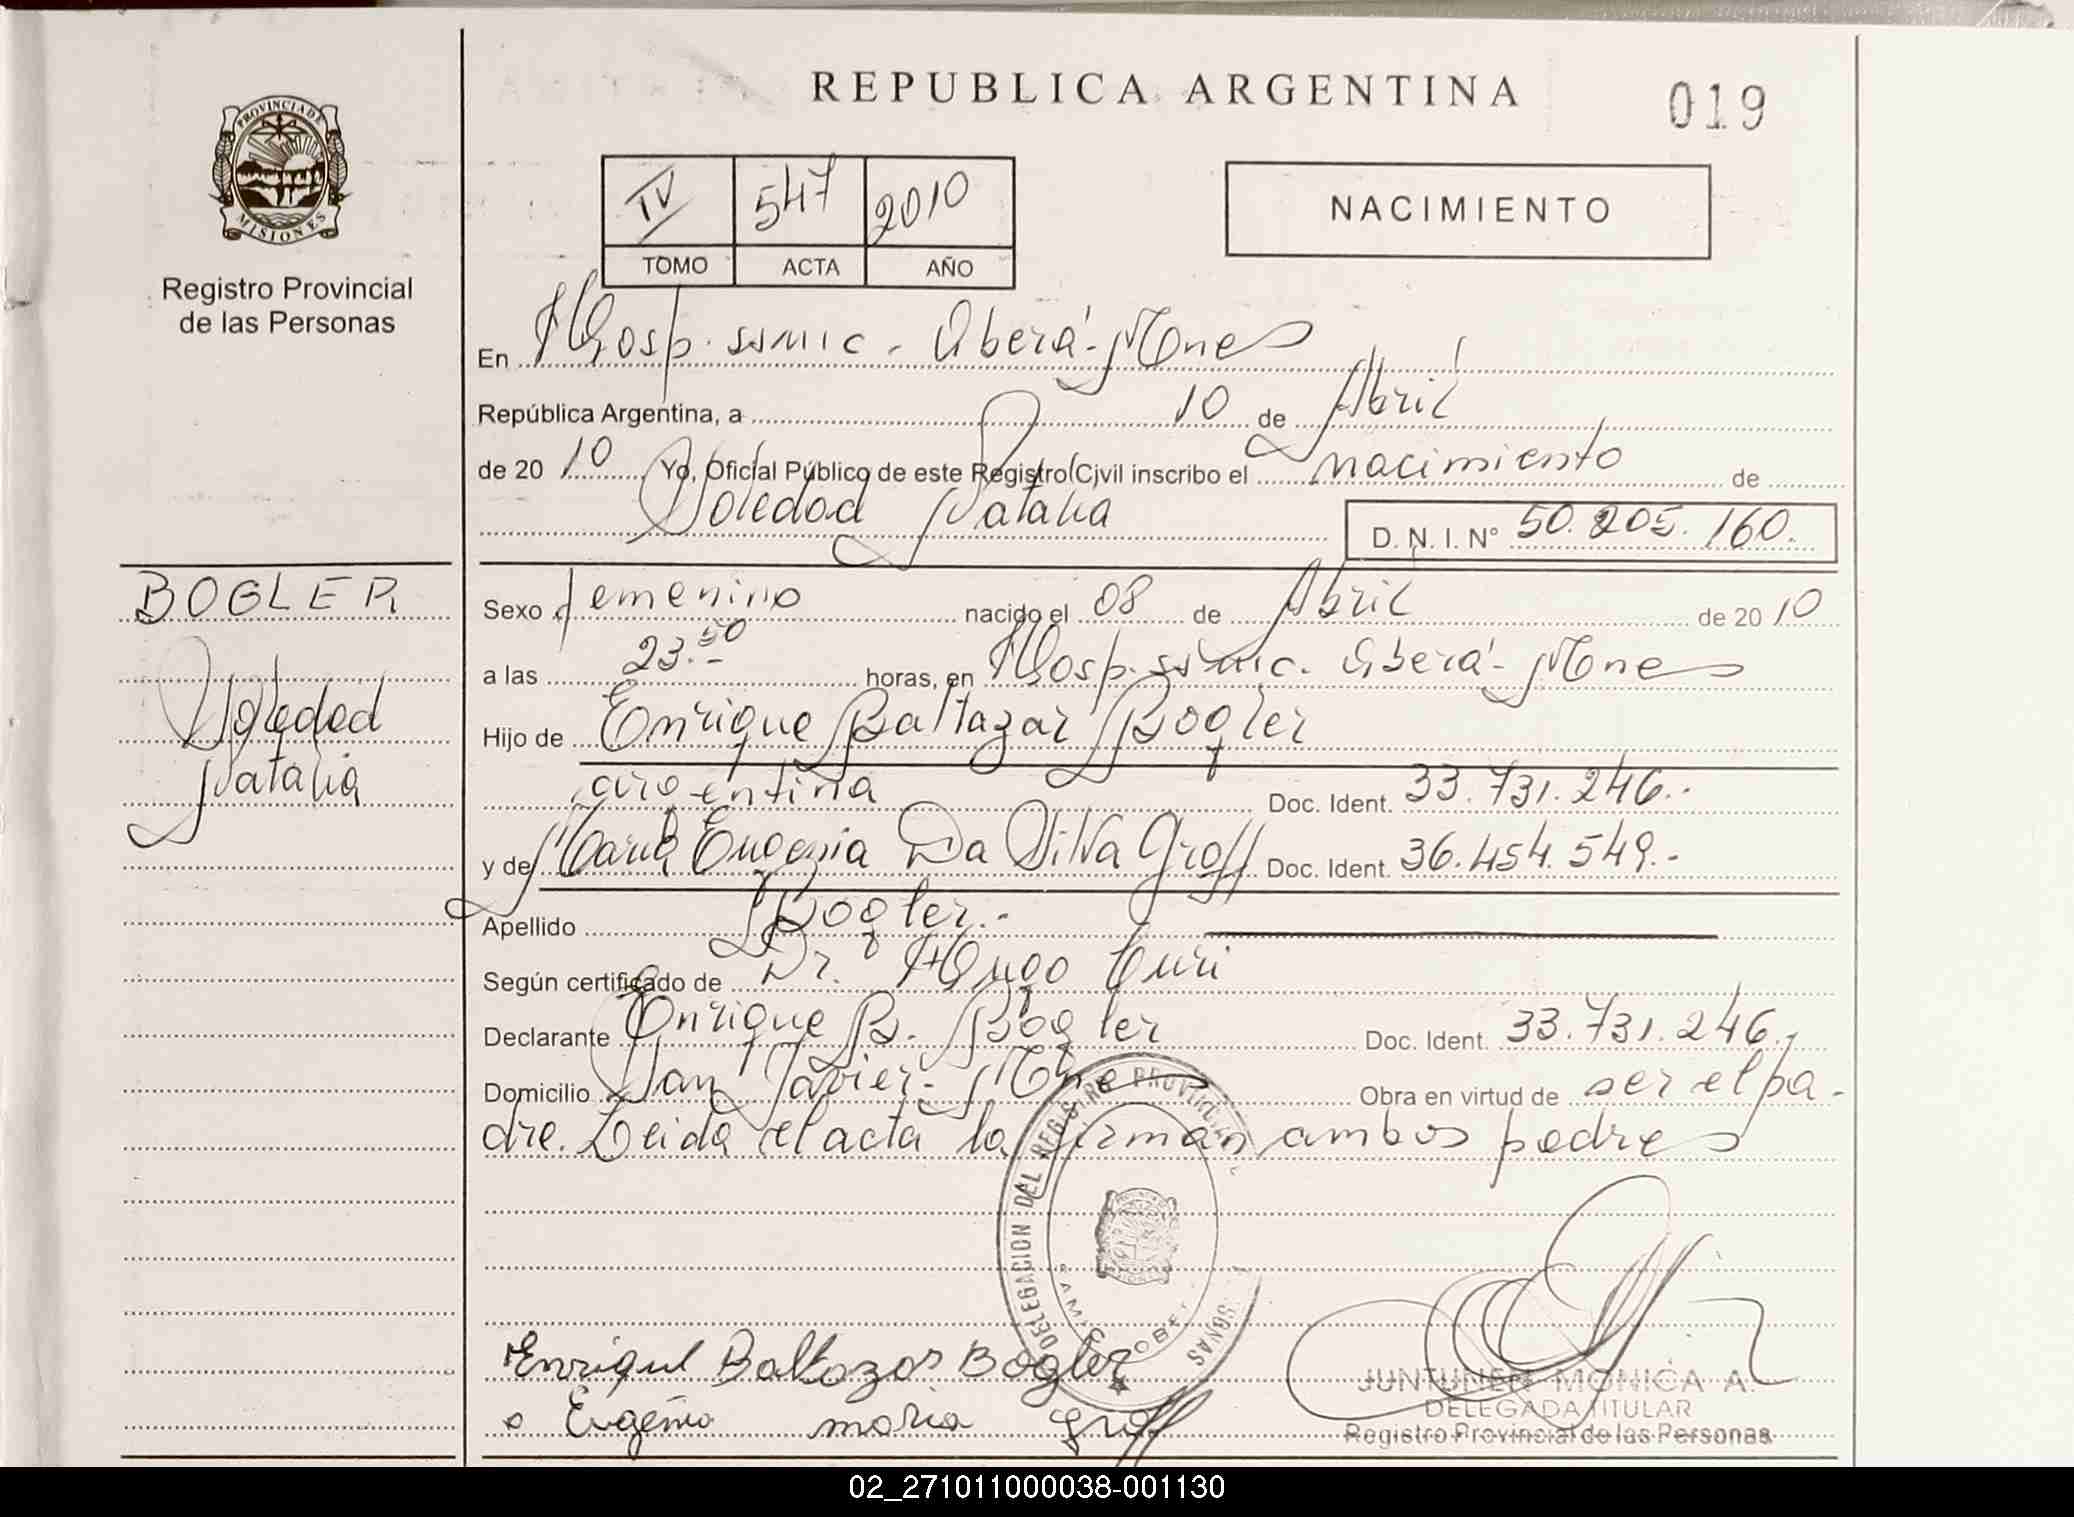 REPUBLICA ARGENTINA
019
PROVINCIA DE
MISIONES
Registro Provincial
de las Personas
IV 547 2010
TOMO ACTA AÑO
NACIMIENTO
En Hosp. SSMIC. Oberá-Mnes
República Argentina, a 10 de Abril
de 20 10 Yo, Oficial Público de este Registro Civil inscribo el nacimiento de
Soledad Natalia
D. N. I. N° 50.205.160.
BOGLER
Soledad
Natalia
Sexo femenino nacido el 08 de Abril de 20 10
a las 23.50 horas, en Hosp. SSMIC. Oberá-Mnes
Hijo de Enrique Baltazar Bogler
argentina Doc. Ident. 33.731.246.-
y de María Eugenia Da Silva Groff Doc. Ident. 36.454.549.-
Apellido Bogler.-
Según certificado de Dr. Hugo
Declarante Enrique B. Bogler Doc. Ident. 33.731.246.-
Domicilio San Javier-Mnes Obra en virtud de ser el pa-
dre. Leida el acta la firman ambos padres
DELEGACION DEL REGISTRO PROVINCIAL
Enrique Baltazar Bogler
Eugenia maria groff
JUNTUNEN MONICA A.
DELEGADA TITULAR
Registro Provincial de las Personas
02_271011000038-001130